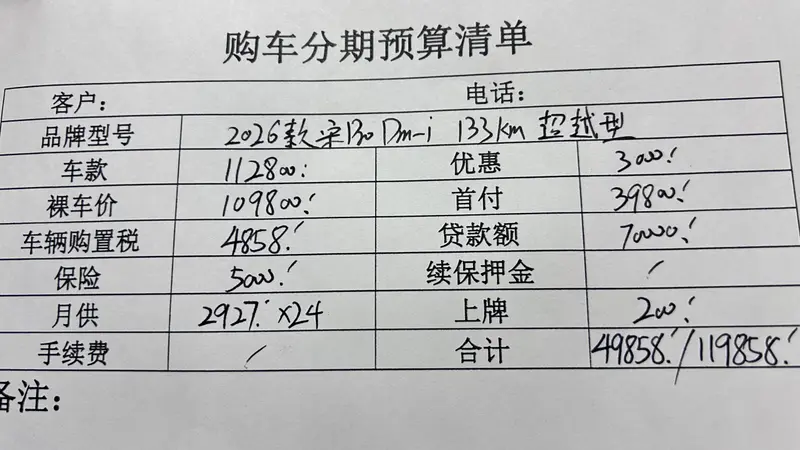 购车分期预算清单
客户: 电话:
品牌型号 2026款宋Pro Dm-i 133km 超越型
车款 112800. 优惠 3000.
裸车价 109800. 首付 39800.
车辆购置税 4858. 贷款额 70000.
保险 5000. 续保押金 /
月供 2927. ×24 上牌 200.
手续费 / 合计 49858./119858.
备注: